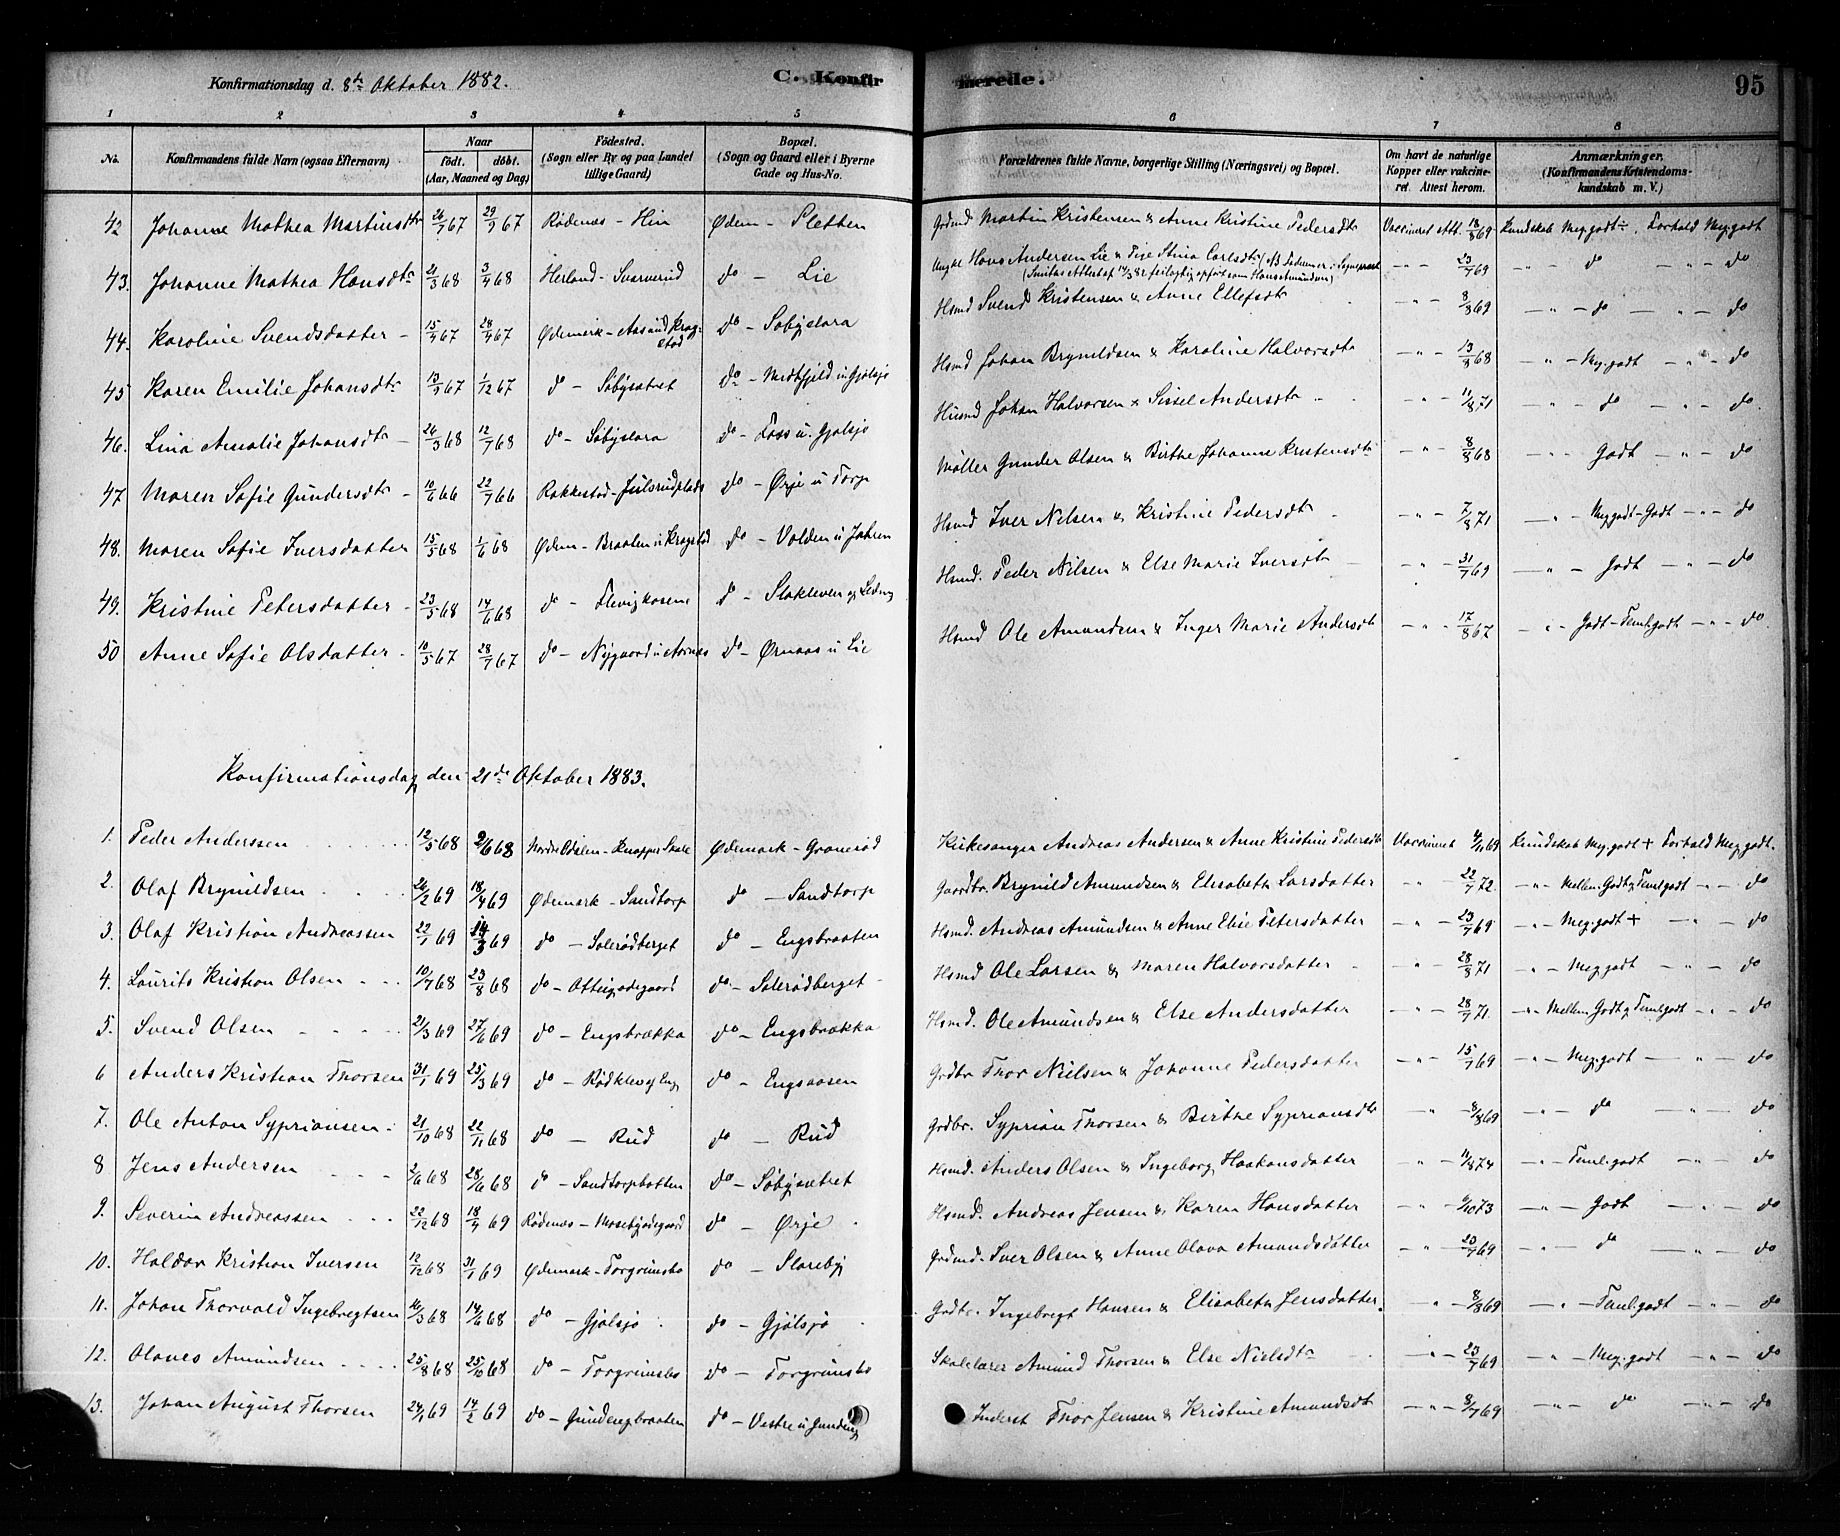 Konfirmationsdag d. 8de Oktober 1882.
C. Konfirmerede.
95
1 2 3 4 5 6 7 8
No. Konfirmandens fulde Navn (ogsaa Efternavn) Naar født. døbt. (Aar, Maaned og Dag) Fødested. (Sogn eller By og paa Landet tillige Gaard) Bopæl. (Sogn og Gaard eller i Byerne Gade og Hus-No. Forældrenes fulde Navne, borgerlige Stilling (Næringsvei) og Bopæl. Om havt de naturlige Kopper eller vakcineret. Attest herom. Anmærkninger. (Konfirmandens Kristendomskundskab m. V.)
42 Johanne Mathea Martinsdtr 26/7 67 29/9 67 Rødenæs - Hin Ødem - Sletten Grdmd Martin Kristensen & Anne Kristine Pedersdtr Vaccineret Att. 18/8 69 Kundskab Meg.godt ÷. Forhold Meg.godt
43. Johanne Mathea Hansdtr 21/3 68 3/4 68 Herland - Svarverud do - Lie Ungk Hans Andersen Lie & Pige Stina Carlsdtr - " - 23/7 69 - " - do - " - do
44. Karoline Svendsdatter - 15/4 67 28/4 67 Ødemark - Aasund Kragstad do - Søbyslora Hsmd Svend Kristensen & Anne Ellefsdtr - " - 8/8 69 - " - do - " - do
45 Karen Emilie Johansdtr 13/9 67 1/12 67 do - Søbysætret do - Midtfjeld u Gjølsjø Hsmd Johan Brynildsen & Karoline Halvorsdtr - " - 13/8 68 " - Meg.godt - " - do
46. Lina Amalie Johansdtr - 26/3 68 12/7 68 do - Søbyslora do - Foss u. Gjølsjø Husmd Johan Halvorsen & Sissel Andersdtr - - " - 11/8 71 - " - do - " - do.
47 Maren Sofie Gundersdtr - 10/6 66 22/7 66 Rakkestad - Julsrudplads do - Ørje u Torp Møller Gunder Olsen & Birthe Johanne Kristensdtr - " - 8/8 68 - " - Godt - " - do
48. Maren Sofie Iversdatter 15/5 68 1/6 68 Ødem - Braaten u Kragstad do - Volden u Jahren Hsmd Iver Nilsen & Kristine Pedersdtr - - " - 7/8 71 - " - Meg.godt - Godt - " - do
49. Kristine Petersdatter - 23/5 68 14/6 68 do - Slevigkasene do - Slakleven Hsmd. Peder Nilsen & Else Marie Iversdtr - - " - 31/7 69 - " - Godt - " - do
50 Anne Sofie Olsdatter - 10/5 67 28/7 67 do - Nygaard u Aarnæs do - Ørnaas u Lie Hsmd Ole Amundsen & Inger Marie Andersdtr - " - 17/8 67 - " - Godt - Teml.godt - " - do.
Konfirmationsdag den 21de Oktober 1883.
1. Peder Anderssen 12/5 68 2/6 68 Nordre Odalen - Knapper Skole Ødemark - Granerød Kirkesanger Andreas Andersen & Anne Kristine Pedersdtr Vaccineret 4/11 69 Kundskab Meg.godt + Forhold Meg.godt.
2. Olaf Brynildsen 24/2 69 18/4 69 Ødemark - Sandtorp do - Sandtorp Gaardbr. Brynild Amundsen & Elisabeth Larsdatter - " - 22/7 72. - " - Mellem Godt & Teml.godt - " - do
3. Olaf Kristian Andreassen 22/1 69 14/3 69 do - Solerødberget do - Engsbraaten Hsmd. Andreas Amundsen & Anne Elise Petersdatter - " - 23/7 69 - " - Meg.godt + - " - do
4. Laurits Kristian Olsen 10/7 68 23/8 68 do - Otteigodegaard do - Solerødberget - Hsmd Ole Larsen & Maren Halvorsdatter - - " - 28/8 71 - " - Meg.godt - " - do
5. Svend Olsen 21/3 69 27/6 69 do - Engsbrækka do - Engsbrækka Hsmd. Ole Amundsen & Else Andersdatter - " - 28/7 71. - " - Mellem Godt & Teml.godt - " - do
6 Anders Kristian Thorsen 31/1 69 25/3 69 do - Rødklev af Eng do - Engsaasen Grdbr Thor Nielsen & Johanne Pedersdatter - " - 15/7 69 - " - Meg.godt - " - do
7. Ole Anton Sypriansen 21/10 68 22/11 68 do - Rud do - Rud Grdbr. Syprian Thorsen & Birthe Sypriansdtr - " - 8/8 69 - " - do - " - do
8. Jens Andersen 2/6 68 28/6 68 do - Sandtorpbøtten do - Søbysætret Hsmd. Anders Olsen & Ingeborg Haakonsdatter - " - 11/8 74 - " - Teml.godt - " - do
9. Severin Andreassen 22/12 68 18/4 69 Rødenæs - Mosebygdegaard do - Ørje Hsmd. Andreas Jensen & Karen Hansdatter - " - 6/10 73 - " - Godt - " - do
10. Haldor Kristian Iversen 12/12 68 31/1 69 Ødemark - Torgrimsbø do - Slareby Grdmd. Iver Olsen & Anne Olava Amundsdatter - " - 23/7 69 - " - do - " - do
11. Johan Thorvald Ingebregtsen 16/3 68 14/6 68 do - Gjølsjø do - Gjølsjø Grdbr. Ingebregt Hansen & Elisabeth Jensdatter. - " - 8/8 69 - " - Teml.godt - " - do
12. Olaves Amundsen 25/8 68 25/10 68 do - Torgrimsbø do - Torgrimsbø Skolelærer Amund Thorsen & Else Nielsdtr - " - 23/7 69 - " - Meg.godt - " - do
13. Johan August Thorsen 24/1 69 14/2 69 do - Gunderegbraaten do - Vestre u Gundereg Inderst Thor Jensen & Kristine Amundsdtr - " - 8/7 69 - " - do - " - do